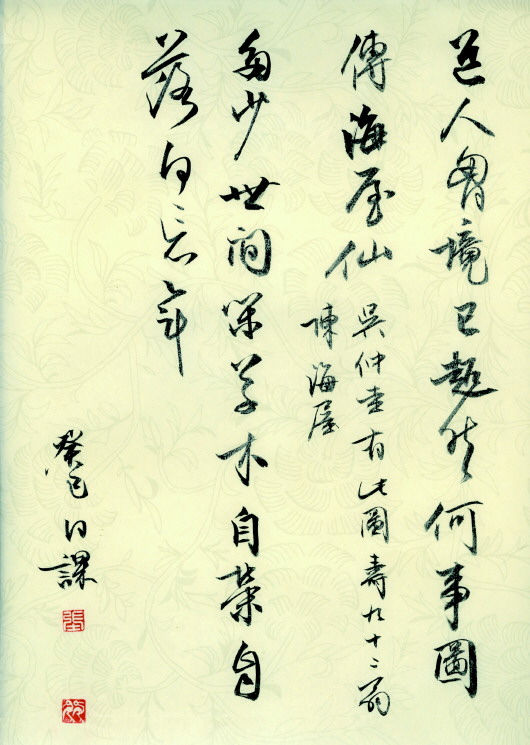 道人胷境已超然何事圖
傳海屋仙
吳仲圭有此圖壽九十二翁
陳海屋
多少世间草木自荣自
落年
癸巳日課